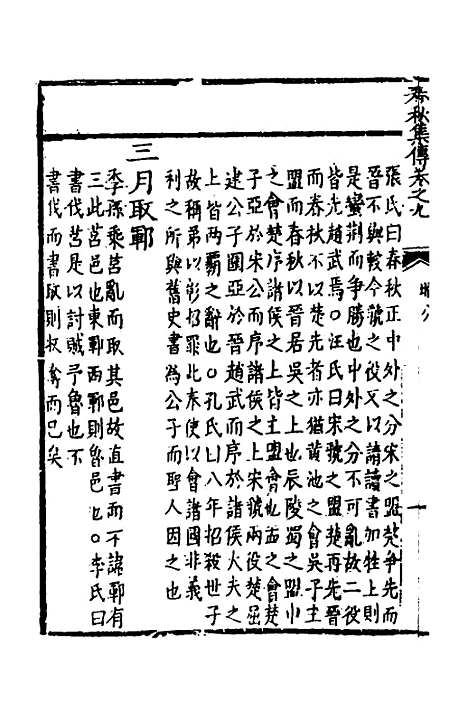 春秋集傳卷之九
昭公
十
張氏曰春秋正中外之分宋之盟楚爭先而
晉不與較今虢之役又以請讀書加牲上則
是蠻荆而爭勝也中外之分不可亂故二役
皆先趙武焉○汪氏曰宋虢之盟楚再先晉
而春秋不以楚先者亦猶黃池之會吳子主
盟而春秋以晉居吳之上也辰陵蜀之盟申
之會楚序諸侯之上皆主盟會也盂之會楚
子亞於宋公而序諸侯之上宋虢兩役楚屈
建公子圍亞於晉趙武而序於諸侯大夫之
上皆兩霸之辭也○孔氏曰八年招殺世子
故稱弟以彰招罪此奉使以會諸國非義
利之所與舊史書為公子而聖人因之也
三月取鄆
季孫乘莒亂而取其邑故直書而不諱鄆有
三此莒邑也東鄆西鄆則魯邑也○李氏曰
書伐莒是以討賊予魯也不
書伐而書取則攘奪而已矣